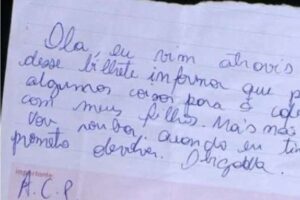 Ola, eu vim atravis
desse bilhete informar que p
algumas coisas para a
com meus filhos. Mas não
Vou roubar, quando eu ti
prometo devolver. Obrigada.
importante:
A.C.P